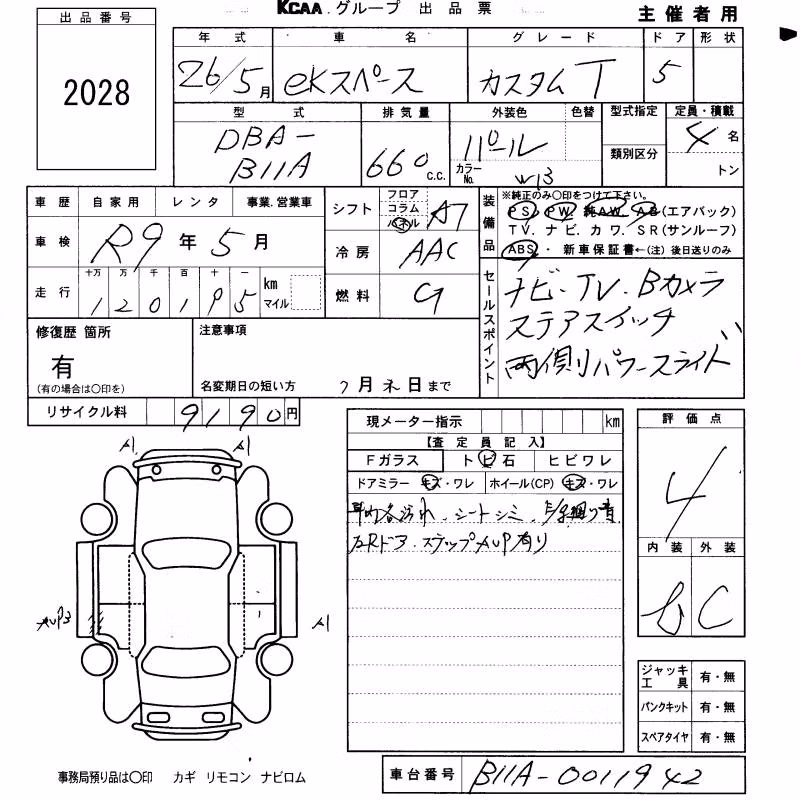 KCAA グループ 出品票
主催者用
出品番号
2028
年式 車名 グレード ドア 形状
26/5月 eKスペース カスタムT 5
型式 排気量 外装色 色替 型式指定 定員・積載
DBA-B11A 660 c.c. パール カラーNo. W13 類別区分 4名 トン
車歴 自家用 レンタ 事業.営業車
車検 R9年5月
走行 十万 万 千 百 十 一 km マイル
120195
シフト フロア コラム パネル A7
冷房 AAC
燃料 G
装備品 ※純正のみ〇印をつけて下さい。
PS. PW. 純AW. AB(エアバック)
TV. ナビ. カワ. SR(サンルーフ)
ABS・ 新車保証書←(注) 後日送りのみ
セールスポイント
ナビ・TV・Bカメラ
ステアスイッチ
両側パワースライド
修復歴 箇所
有
(有の場合は〇印を)
注意事項
名変期日の短い方 7月末日まで
リサイクル料 9190円
現メーター指示 km
【査定員記入】
Fガラス トビ石 ヒビワレ
ドアミラー キズ・ワレ ホイール(CP) キズ・ワレ
車内各汚れ、シートシミ、
ステップAUP有り
評価点
4
内装 外装
C
ジャッキ工具 有・無
パンクキット 有・無
スペアタイヤ 有・無
A1 A1
AUP3 A1
事務局預り品は〇印 カギ リモコン ナビロム
車台番号 B11A-0011942